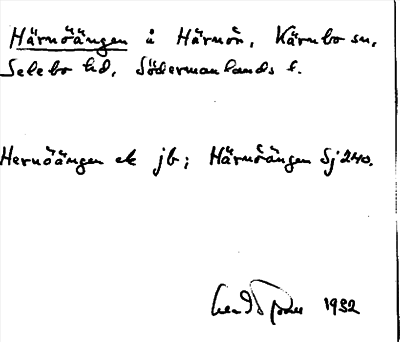 Härnöängen å Härnön, Kärnbo sn,
Selebo hd, Södermanlands l.
Hernöängen ek jb; Härnöängen Sj 240.
1932